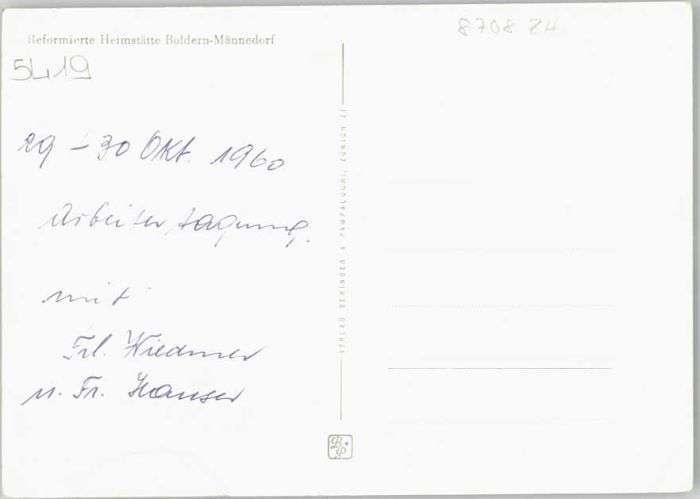 Reformierte Heimstätte Boldern-Männedorf
8708 ZH
5419
29 – 30 Okt. 1960
Arbeiter tagung.
mit
Frl. Wiedmer
u. Fr. Hauser
VERLAG BERINGER & PAMPALUCHI, ZÜRICH 11